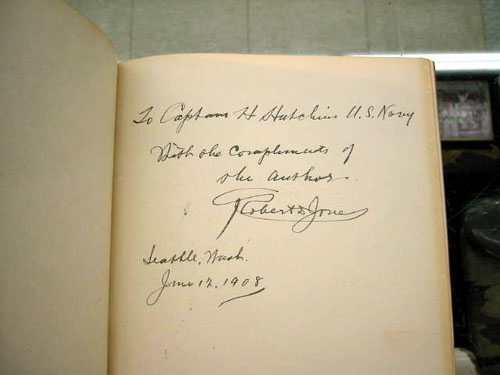 To Captain H Hutchins U.S. Navy
With the compliments of
the author.
Robert D Jones
Seattle, Wash.
June 12, 1908